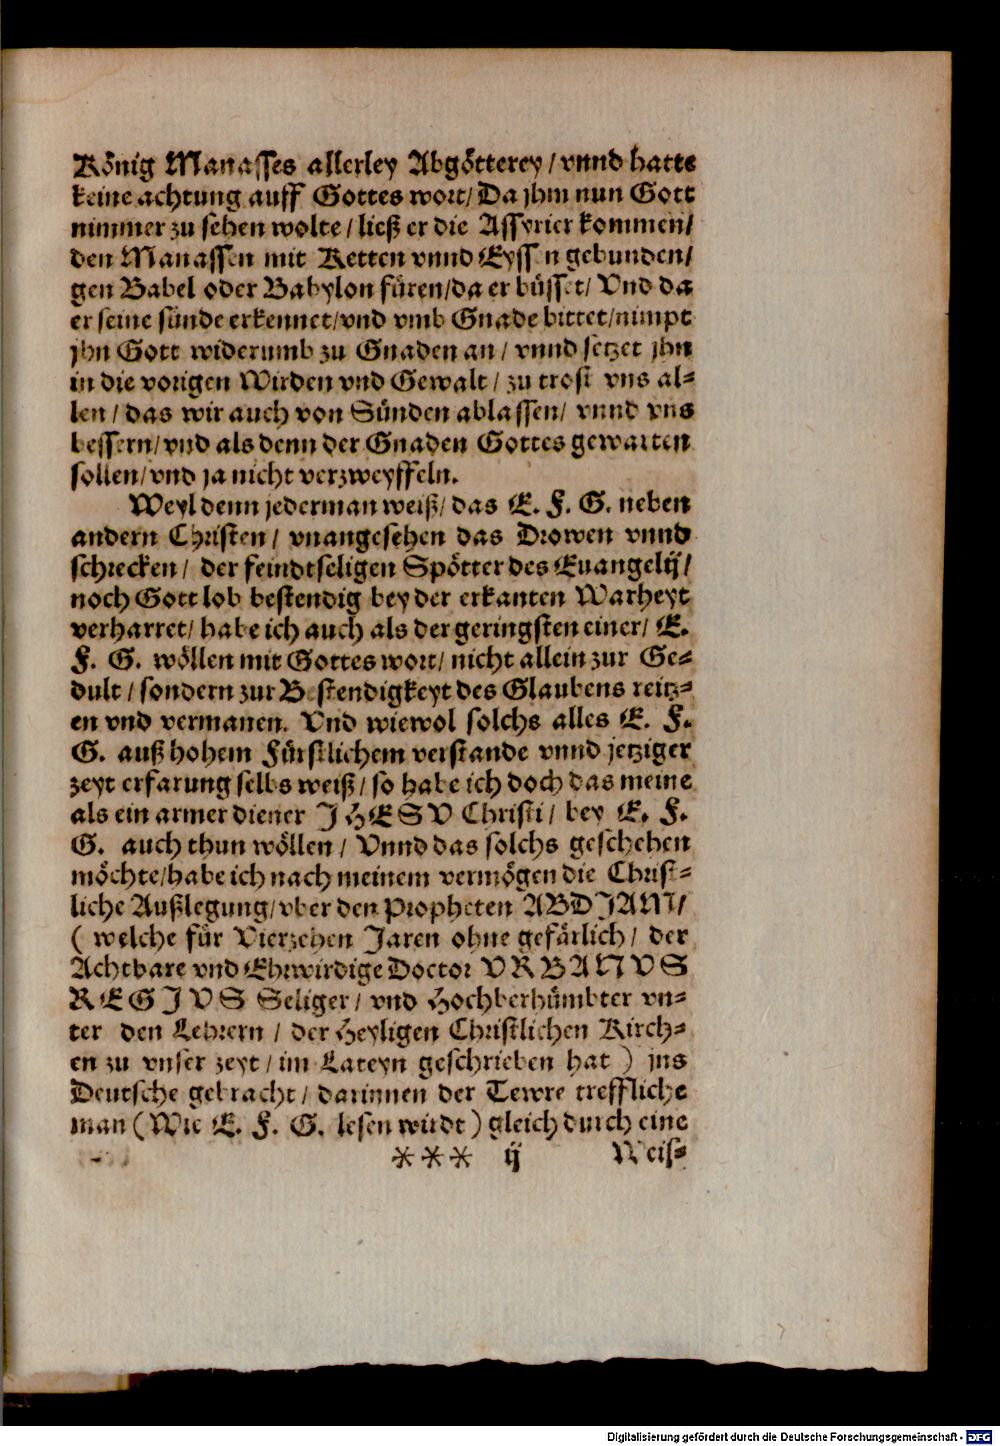 König Manasses allerley Abgötterey / vnnd hatte
keine achtung auff Gottes wort / Da jhm nun Gott
nimmer zu sehen wolte / ließ er die Assyrier kommen /
den Manassen mit Ketten vnnd Eyssen gebunden /
gen Babel oder Babylon füren / da er büsset / Vnd da
er seine sünde erkennet / vnd vmb Gnade bittet / nimpt
jhn Gott widerumb zu Gnaden an / vnnd setzet jhn
in die vorigen Wirden vnd Gewalt / zu trost vns al⸗
len / das wir auch von Sünden ablassen / vnnd vns
bessern / vnd als denn der Gnaden Gottes gewarten
sollen / vnd ja nicht verzweyffeln.
Weyl denn jederman weiß / das E. F. G. neben
andern Christen / vnangesehen das Drowen vnnd
schrecken / der feindtseligen Spötter des Euangelij /
noch Gott lob bestendig bey der erkanten Warheyt
verharret / habe ich auch als der geringsten einer / E.
F. G. wöllen mit Gottes wort / nicht allein zur Ge⸗
dult / sondern zur Bestendigkeyt des Glaubens reitz⸗
en vnd vermanen. Vnd wiewol solchs alles E. F.
G. auß hohem Fürstlichem verstande vnnd jetziger
zeyt erfarung selbs weiß / so habe ich doch das meine
als ein armer diener JHESV Christi / bey E. F.
G. auch thun wöllen / Vnnd das solchs geschehen
möchte / habe ich nach meinem vermögen die Christ⸗
liche Außlegung / vber den Propheten ABDJAM /
( welche für Vierzehen Jaren ohne gefärlich / der
Achtbare vnd Ehrwirdige Doctor VRBANVS
REGJVS Seliger / vnd Hochberhümbter vn⸗
ter den Lehrern / der Heyligen Christlichen Kirch⸗
en zu vnser zeyt / im Lateyn geschrieben hat ) jns
Deutsche gebracht / darinnen der Tewre treffliche
man ( Wie E. F. G. lesen wirdt ) gleich durch eine
*** ij Weis⸗
Digitalisierung gefördert durch die Deutsche Forschungsgemeinschaft - DFG